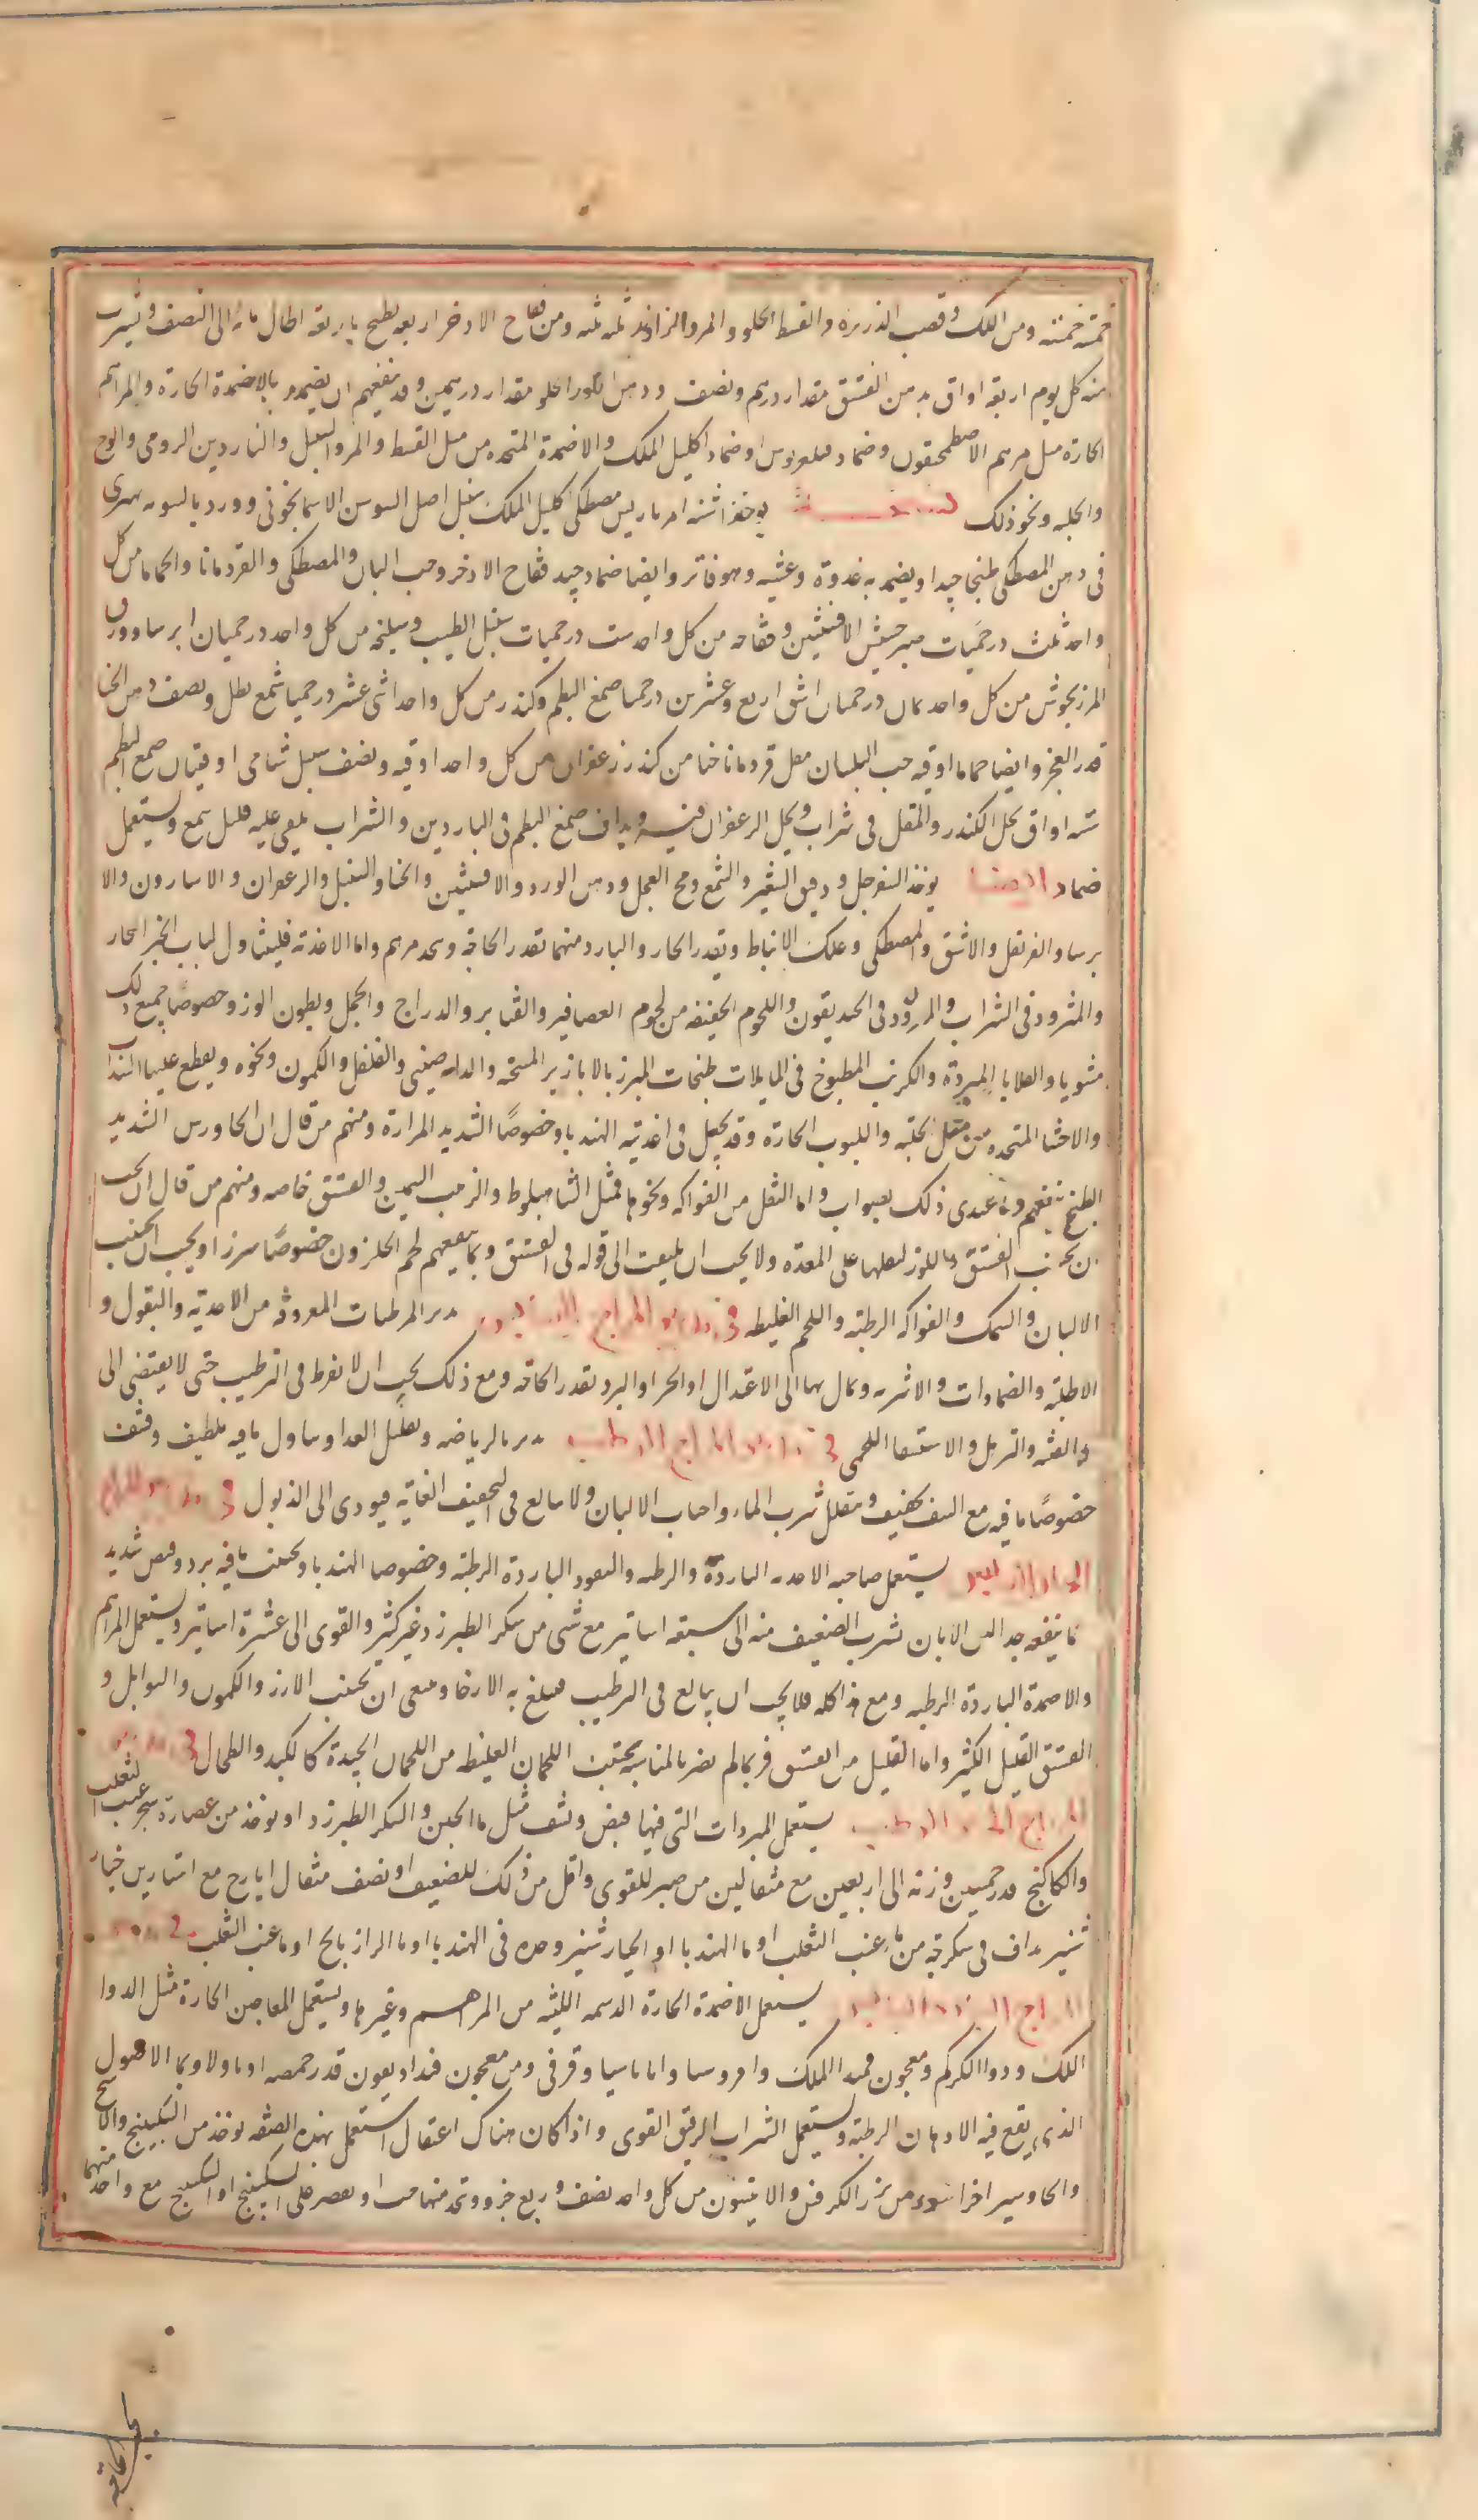 خمسة خمسة ومن اللك وقصب الذريره والقسط الحلو والمر والراوند ثلثه ثلثه ومن فقاح الاذخر اربعه يطبخ باربعة ارطال ماء الى النصف ويشرب
منه كل يوم اربع اواق بدهن الفستق مقدار درهم ونصف ودهن اللوز الحلو مقدار درهمين وقد ينفعهم ان يضمدوا بالاضمدة الحارة والمراهم
الحارة مثل مرهم الاصطمحيقون وضماد فيلغريوس او ضماد اكليل الملك والاضمدة المتخذه من مثل القسط والمر والسنبل والناردين الرومى والوج
والحلبه ونحو ذلك نسخة يوخذ اشنه امبرباريس مصطكى اكليل الملك سنبل اصل السوسن الاسمانجونى وورد بالسويه يهرى
فى دهن المصطكى طبخا جيدا ويضمد به غدوة وعشيه وهو فاتر وايضا ضماد جيد فقاح الاذخر وحب البان والمصطكى والقردمانا والحماما من كل
واحد ثلث درخميات صبر حشيش الافسنتين وفقاحه من كل واحد ست درخميات سنبل الطيب وسليخه من كل واحد درخميان ايرسا وورق
المرزنجوش من كل واحد ثمان درخميات اشق اربع وعشرين درخميا صمغ البطم وكندر من كل واحد اثنى عشر درخميا شمع رطل ونصف دهن الحنا
قدر العجز وايضا حماما اوقيه حب البلسان مقل قردمانا حنا من كندر زعفران من كل واحد اوقيه ونصف سنبل شامى اوقيتان صمغ البطم
سته اواق يحل الكندر والمقل فى شراب ويحل الزعفران فيه ويداف صمغ البطم فى الناردين والشراب يلقى عليه قليل شمع ويستعمل
ضماد ايضا يوخذ السفرجل ودقيق الشعير والشمع ومح العجل ودهن الورد والافسنتين والحنا والسنبل والزعفران والاسارون والا
يرسا والقرنفل والاشق والمصطكى وعلك الانباط ويقدر الحار والبارد منهما بقدر الحاجة ويتخذ مرهم واما الاغذيه فليتناول لباب الخبز الحار
والمثرود فى الشراب والمثرود فى الخنديقون واللحوم الخفيفه من لحوم العصافير والقنابر والدراج والحجل وبطون الوز وخصوصا جميع ذلك
مشويا والقلايا المبردة والكرنب المطبوخ فى الماء ثلاث طبخات المبزر بالابازير المسخنه والدارصينى والفلفل والكمون ونحوه ويقطع عليها السذاب
والاحشا المتخذه من مثل الحلبه واللبوب الحارة وقد يجعل فى اغذيته الهندبا وخصوصًا الشديد المرارة ومنهم من قال ان الجاورس الشديد
الطبخ ينفعهم وما عندى ذلك بصواب واما النقل من الفواكه ونحوها فمثل الشاهبلوط والزبيب السمين والفستق خاصه ومنهم من قال ان يجب
ان يجتنب الفستق واللوز لثقلهما على المعدة ولا يجب ان يلتفت الى قوله فى الفستق ومما ينفعهم لحم الحلزون خصوصًا مبزرا ويجب ان يجتنب
الالبان والسمك والفواكه الرطبه واللحم الغليظه فى تدبير المزاج اليابس يدبر بالمرطبات المعروفه من الاغذيه والبقول و
الاطليه والضمادات والاشربه ويمال بها الى الاعتدال او الحر او البرد بقدر الحاجه ومع ذلك يجب ان لا يفرط فى الترطيب حتى لا يفضى الى
والترهل والاستسقا اللحمى فى تدبير المزاج الرطب يدبر بالرياضه وتقليل الغذا وتناول مافيه تلطيف ونشف
خصوصًا مافيه مع النشف تجفيف وتقليل شرب الماء واجتناب الالبان ولا يبالغ فى التجفيف الغايه فيودى الى الذبول فى تدبير المزاج
الحار اليابس يستعمل صاحبه الاغذيه الباردة والرطبه والبقول الباردة الرطبه وخصوصا الهندبا ويجتنب مافيه برد وقبض شديد
مما ينفعه جدا لبن الاتان يشرب الضعيف منه الى سبعه اساتير مع شى من سكر الطبرزد غير كثير والقوى الى عشرة اساتير ويستعمل المراهم
والاضمدة الباردة الرطبه ومع هذا كله فلا يجب ان يبالغ فى الترطيب فيبلغ به الارخا وينبغى ان يجتنب الارز والكمون والتوابل و
الفستق القليل الكثير واما القليل من الفستق فربما لم يضر بالمناسبه ويجتنب اللحمان الغليظه من اللحمان الجيدة كالكبد والطحال فى تدبير
المزاج الحار الرطب يستعمل المبردات التى فيها قبض ونشف مثل ما الجبن والسكر الطبرزد او يوخذ من عصارة شجر عنب الثعلب
والكاكنج قدر خمسين وزنه الى اربعين مع مثقالين من صبر للقوى واقل من ذلك للضعيف او نصف مثقال ايارج مع استارين خيار
شنبر يداف فى سكرجة من ما عنب الثعلب او ما الهندبا او الخيار شنبر وحده فى الهندبا او ما الرازيانج او ما عنب الثعلب فى تدبير
المزاج البارد اليابس يستعمل الاضمدة الحارة الدسمه اللينه من المراهم وغيرها ويستعمل المعاجين الحارة مثل الدوا
اللك ودوا الكركم ومعجون قيصر الملك وامروسيا واثاناسيا وقرفى ومن معجون فنداديقون قدر حمصه او باقلاه وبما الاصول
الذى يقع فيه الادهان الرطبه ويستعمل الشراب الرقيق القوى واذا كان هناك اعتقال استعمل بهذه الصفه يوخذ من السكبينج والاشج
والجاوسير اجزا سوا ومن بزر الكرفس والانيسون من كل واحد نصف وربع جزو ويتخذ منهما حب او يقتصر على السكبينج او السكبينج مع واحد منهما